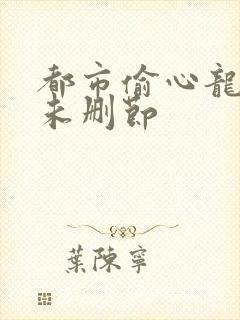 都市偷心龍
未删節
葉陳寧